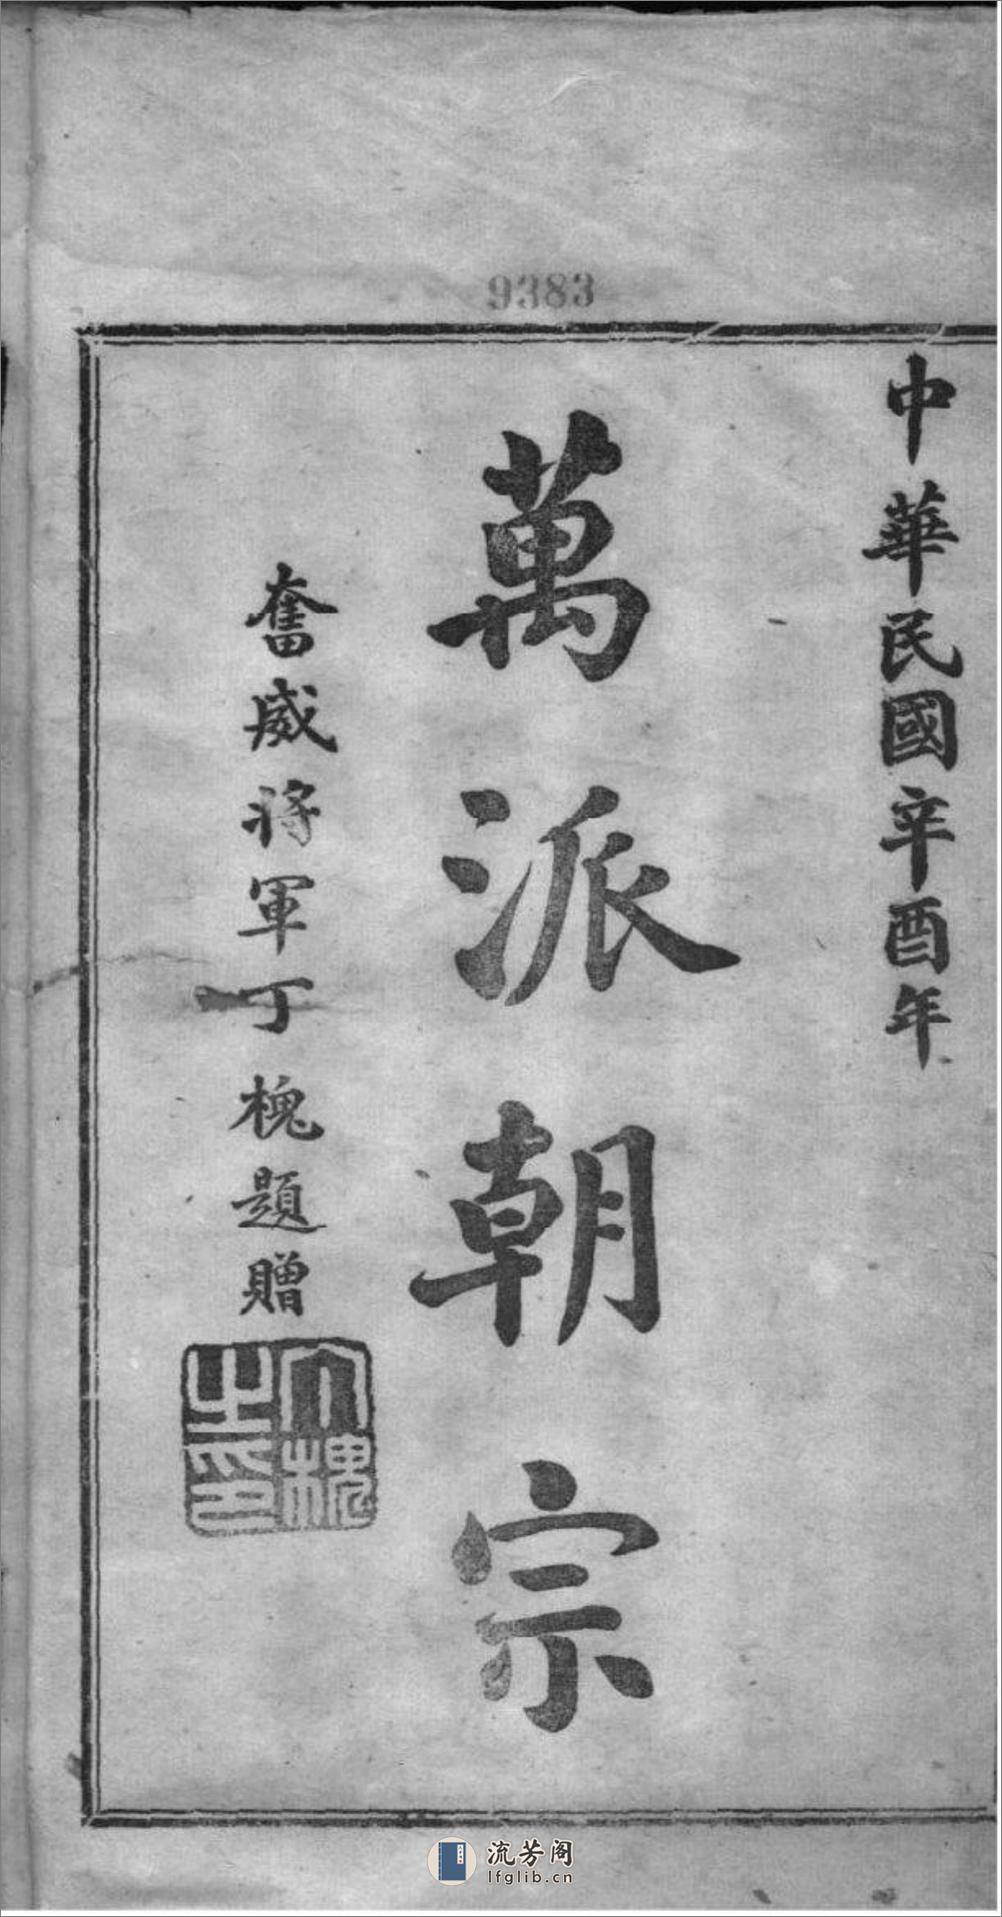 9383
中華民國辛酉年
萬派朝宗
奮威將軍丁槐題贈
丁槐之印
流芳阁
lfglib.cn